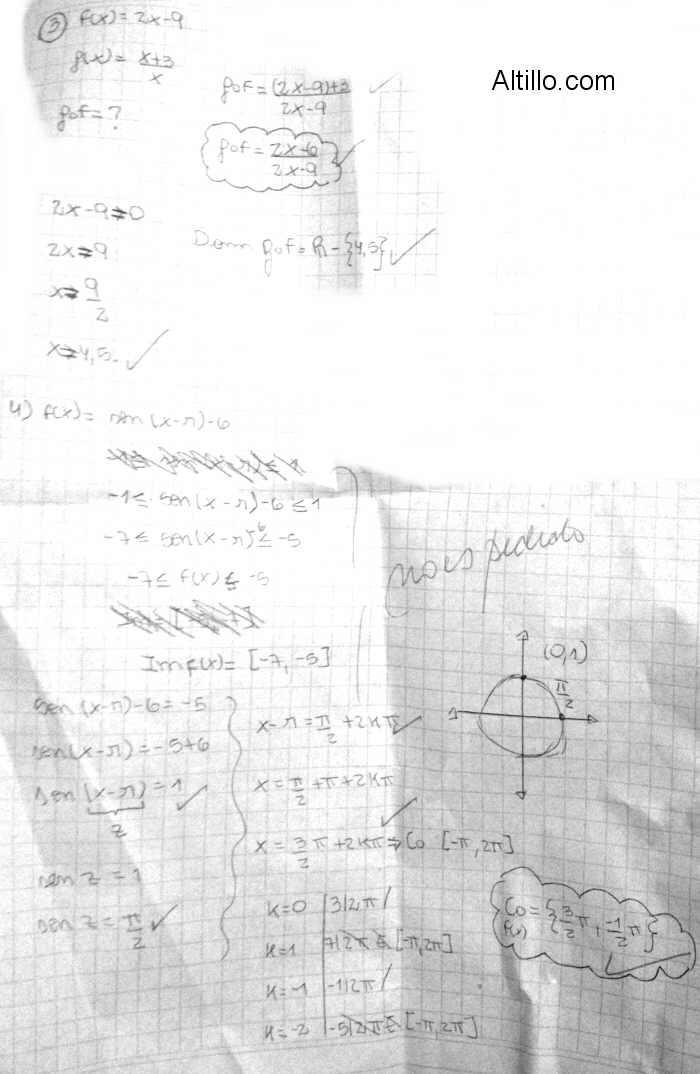 ③ f(x) = 2x-9
g(x) = x+3/x
gof = ?
gof = (2x-9)+3/2x-9
gof = 2x-6/2x-9
2x-9≠0
2x≠9
x≠9/2
x≠4,5.
Dom gof = R - {4,5}
4) f(x) = sen (x-π)-6
-1 ≤ sen(x-π)-6 ≤ 1
-7 ≤ sen(x-π)-6 ≤ -5
-7 ≤ f(x) ≤ -5
Im f(x) = [-7, -5]
no es pedido
sen (x-π)-6 = -5
sen (x-π) = -5+6
sen (x-π) = 1
z
sen z = 1
sen z = π/2
x-π = π/2 + 2kπ
x = π/2 + π + 2kπ
x = 3/2 π + 2kπ ⇒ Co [-π, 2π]
k=0 | 3/2π
k=1 | 7/2π ∉ [-π, 2π]
k=-1 | -1/2π
k=-2 | -5/2π ∉ [-π, 2π]
(0,1)
π/2
Co f(x) = {3/2 π + -1/2 π}
Altillo.com